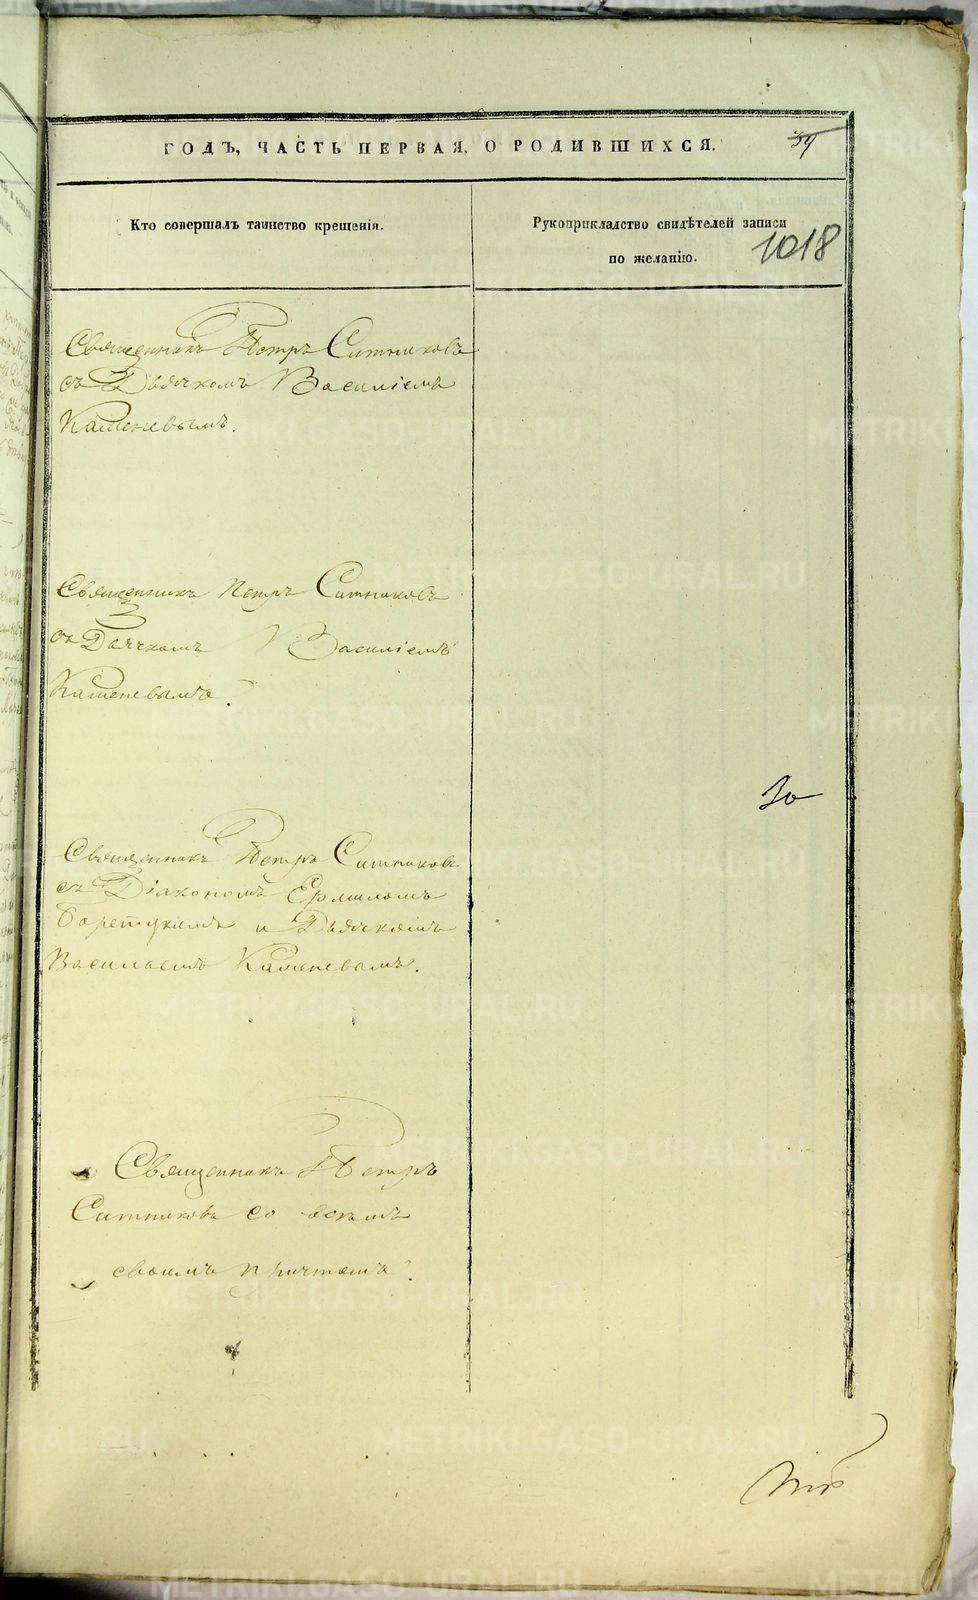 ГОДЪ, ЧАСТЬ ПЕРВАЯ, О РОДИВШИХСЯ.
Кто совершалъ таинство крещенія.
Рукоприкладство свидѣтелей записи
по желанію.
1018
Священникъ Петръ Ситниковъ
съ Дьячкомъ Василіемъ
Каменевымъ.
Священникъ Петръ Ситниковъ
съ Дьячкомъ Василіемъ
Каменевымъ.
30
Священникъ Петръ Ситниковъ
съ Діакономъ Ермиломъ
и Дьячкомъ
Василіемъ Каменевымъ.
Священникъ Петръ
Ситниковъ со всемъ
своимъ причтомъ.
METRIKI.GASO-URAL.RU